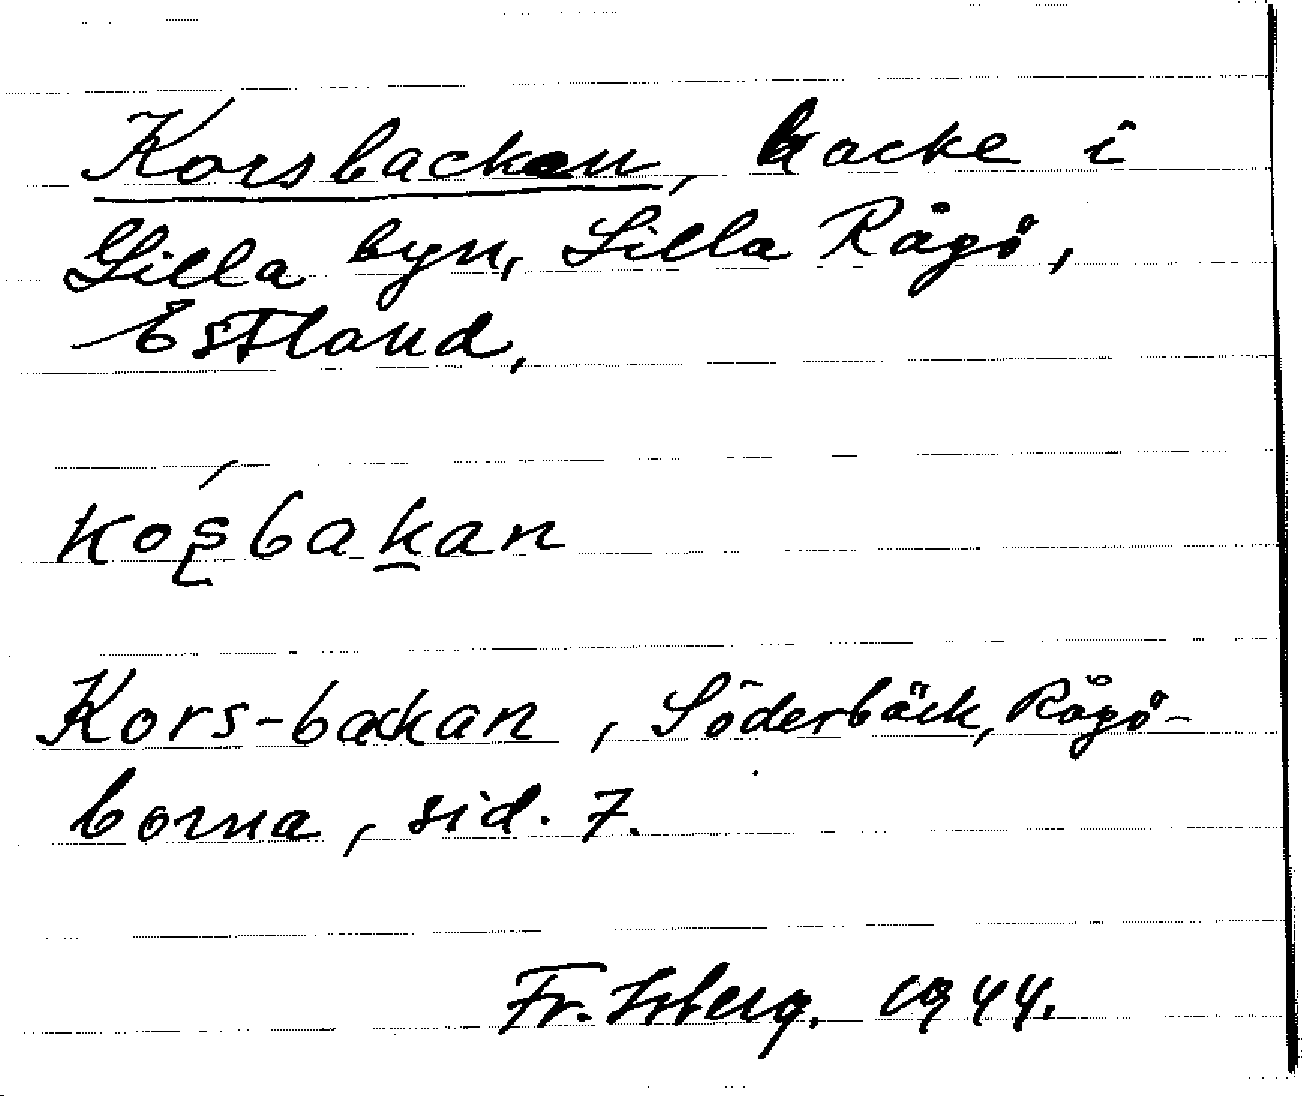 Korsbacken, backe i
Lilla byn, Lilla Rågö,
Estland.
koʂ́bak̲an
Kors-bakan, Söderbäck, Rågö-
borna, sid. 7.
Fr. Isberg. 1944.